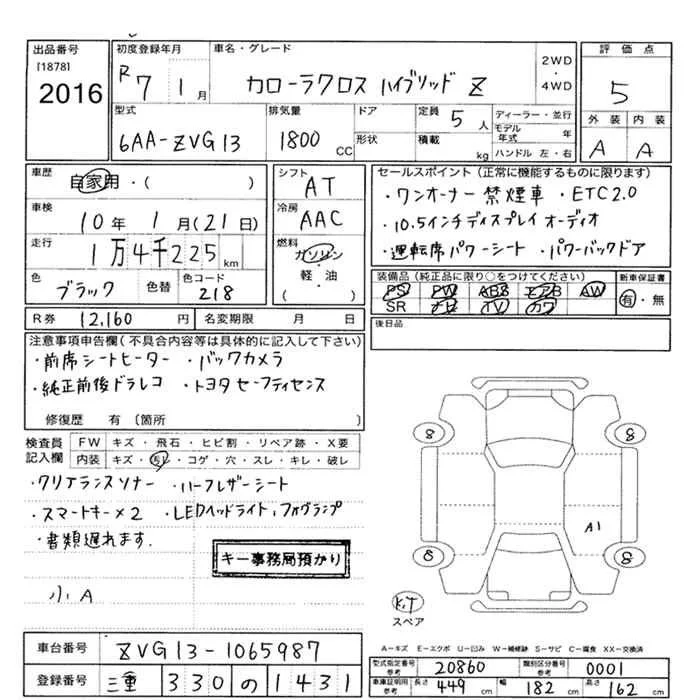 出品番号
[1878]
2016
初度登録年月
R7 1月
車名・グレード
カローラクロス ハイブリッド Z
2WD
・
4WD
評価点
5
外装 内装
A A
型式
6AA-ZVG13
排気量
1800 CC
ドア
形状
定員 5人
積載 kg
ディーラー・並行
モデル年式 年
ハンドル 左・右
車歴
自家用・( )
車検
10年 1月(21日)
走行
1万4千225km
色
ブラック
色替
色コード
218
シフト
AT
冷房
AAC
燃料
ガソリン
・
軽・油
( )
セールスポイント(正常に機能するものに限ります)
・ワンオーナー 禁煙車 ・ETC2.0
・10.5インチディスプレイ オーディオ
・運転席パワーシート ・パワーバックドア
装備品(純正品に限り○をつけてください)
PS PW ABS エアB AW
SR ナビ TV カワ
新車保証書
有・無
R券 12,160円
名変期限 月 日
後日品
注意事項申告欄(不具合内容等は具体的に記入して下さい)
・前席シートヒーター ・バックカメラ
・純正前後ドラレコ ・トヨタセーフティセンス
修復歴 有 〔箇所 〕
検査員記入欄
FW キズ・飛石・ヒビ割・リペア跡・X要
内装 キズ・汚レ・コゲ・穴・スレ・キレ・破レ
・クリアランスソナー ・ハーフレザーシート
・スマートキー×2 ・LEDヘッドライト,フォグランプ
・書類遅れます.
キー事務局預かり
小A
8 8
A1
8 8
スペア
A-キズ E-エクボ U-凹み W-補修跡 S-サビ C-腐食 XX-交換済
車台番号 ZVG13-1065987
登録番号 三重 330 の 1431
型式指定番号 参考 20860
類別区分番号 参考 0001
車庫証明用 参考 長さ 449cm 幅 182cm 高さ 162cm